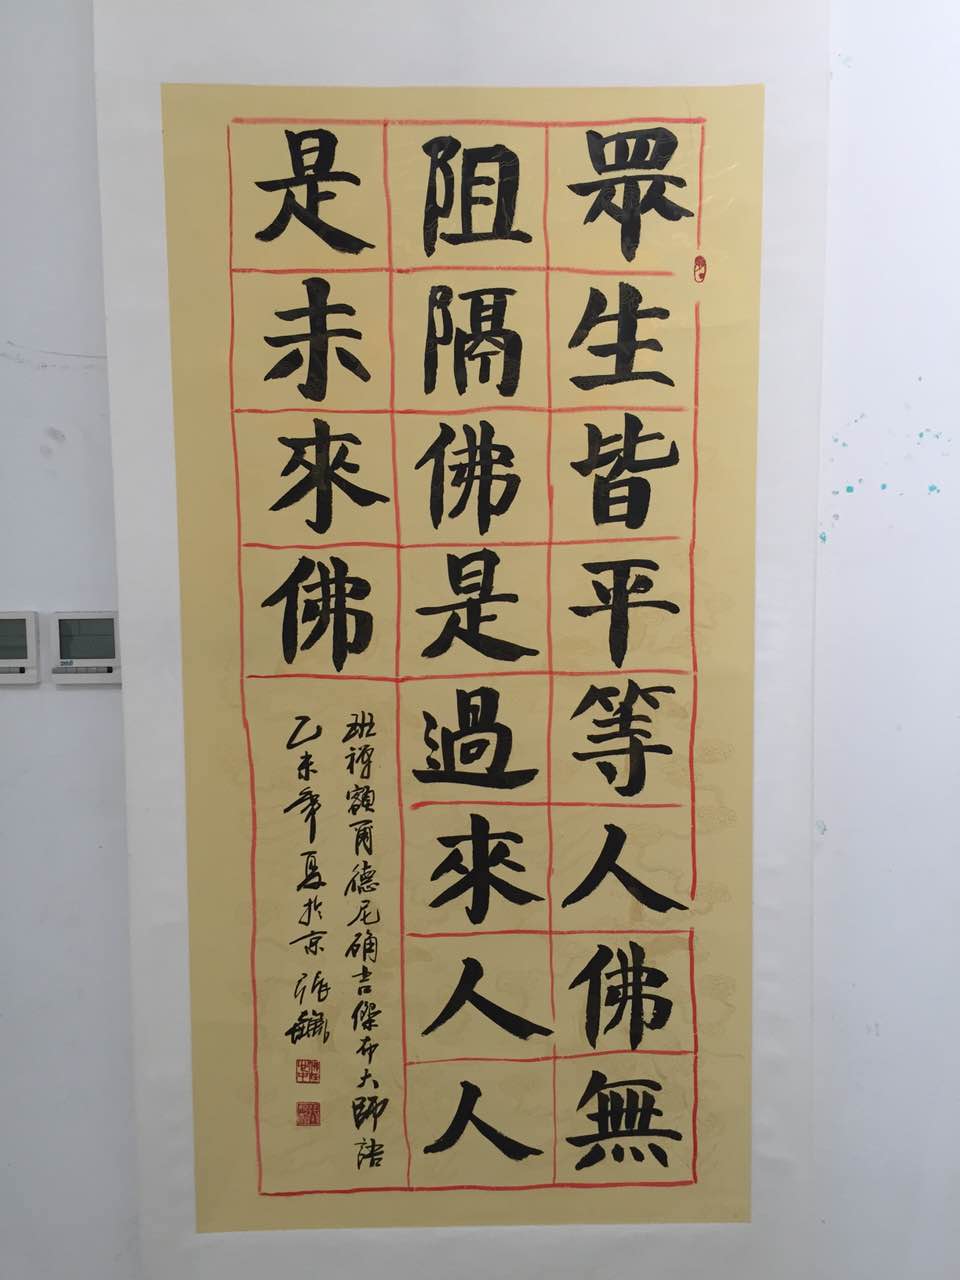 眾生皆平等人佛無
阻隔佛是過來人人
是未來佛
班禪額爾德尼確吉傑布大師語
乙未年夏於京張